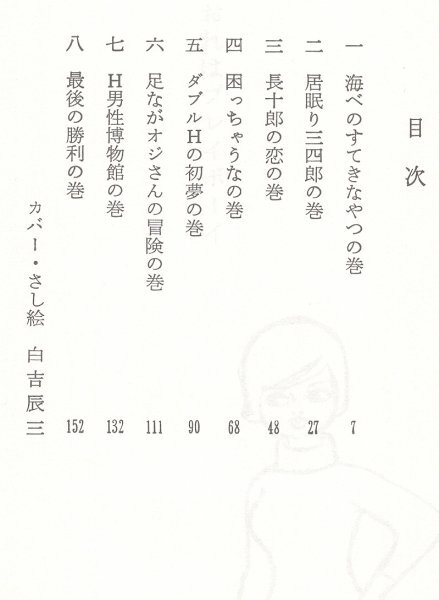 目次
一 海べのすてきなやつの巻 7
二 居眠り三四郎の巻 27
三 長十郎の恋の巻 48
四 困っちゃうなの巻 68
五 ダブルHの初夢の巻 90
六 足ながオジさんの冒険の巻 111
七 H男性博物館の巻 132
八 最後の勝利の巻 152
カバー・さし絵 白吉辰三